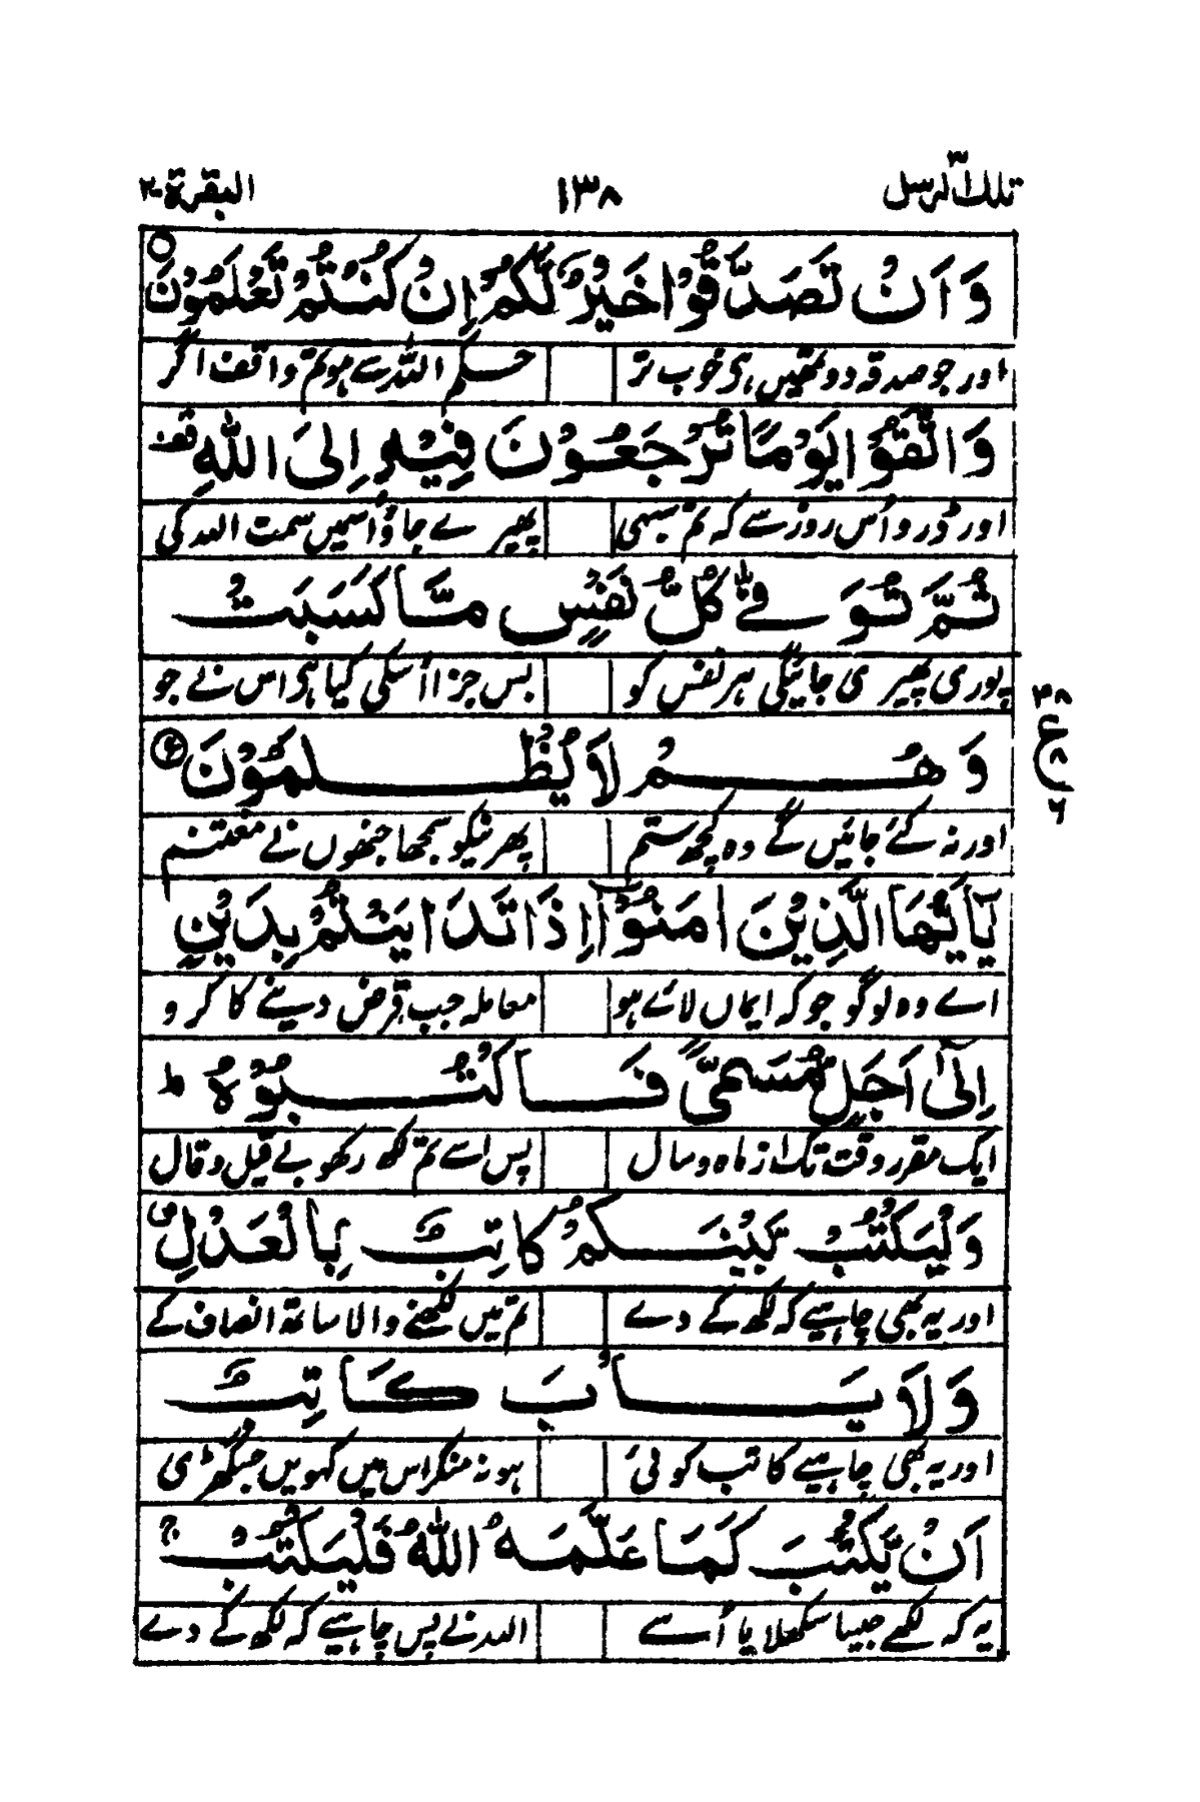 تلك الرسل ٣ ١٣٨ البقرة ٢
وَاَنْ تَصَدَّقُوْا خَيْرٌ لَّكُمْ اِنْ كُنْتُمْ تَعْلَمُوْنَ
اور جو صدقہ دو تمھیں ہی خوب تر حکم اللہ سے ہو تم واقف اگر
وَاتَّقُوْا يَوْمًا تُرْجَعُوْنَ فِيْهِ اِلَى اللّٰهِ قف
اور ڈرو اُس روز سے کہ تم سبہی پھیرے جاؤ اُسمیں سمت اللہ کی
ثُمَّ تُوَفّٰى كُلُّ نَفْسٍ مَّا كَسَبَتْ
پوری پھیری جائیگی ہر نفس کو بس جزا اُسکی کیا ہی اس نے جو
وَهُمْ لَا يُظْلَمُوْنَ
٣٨
ع
٨
٦
اور نہ کئے جائیں گے وہ کچھ ستم پھر نیکو سمجھا جنھوں نے مغتنم
يٰۤاَيُّهَا الَّذِيْنَ اٰمَنُوْۤا اِذَا تَدَايَنْتُمْ بِدَيْنٍ
اے وہ لوگو جو کہ ایماں لائے ہو معاملہ جب قرض دینے کا کرو
اِلٰۤى اَجَلٍ مُّسَمًّى فَاكْتُبُوْهُ ط
ایک مقرر وقت تک از ماہ و سال پس اسے تم لکھ رکھو بے قیل و قال
وَلْيَكْتُبْ بَّيْنَكُمْ كَاتِبٌ بِالْعَدْلِ ص
اور یہ بھی چاہیے کہ لکھ کے دے تم میں لکھنے والا ساتھ انصاف کے
وَلَا يَاْبَ كَاتِبٌ
اور یہ بھی چاہیے کاتب کوئی ہو نہ منکر اس میں کہویں جس گھڑی
اَنْ يَّكْتُبَ كَمَا عَلَّمَهُ اللّٰهُ فَلْيَكْتُبْ ج
یہ کہ لکھے جیسا سکھلایا اُسے اللہ نے پس چاہیے کہ لکھ کے دے